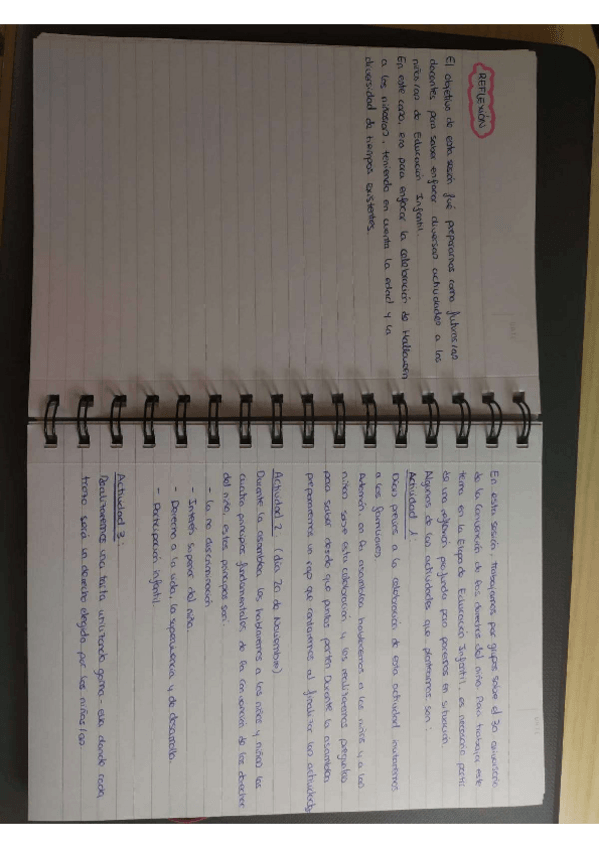 REFLEXIÓN
El objetivo de esta sesión fué prepararnos como futuros/as
docentes para saber enfocar diversas actividades a los
niños/as de Educación Infantil.
En este caso, era para enfocar la celebración de Halloween
a los niños/as, teniendo en cuenta la edad y la
diversidad de tiempos existentes.
En esta sesión, trabajamos por grupos sobre el 30 aniversario
de la Convención de los derechos del niño. Para trabajar este
tema en la Etapa de Educación Infantil, es necesario partir
de una reflexión profunda para ponernos en situación.
Algunas de las actividades que planteamos son:
Actividad 1:
Días previos a la celebración de esta actividad invitaremos
a las familias
Además, en la asamblea hablaremos a los niños y a las
niñas sobre esta celebración y les realizaremos preguntas
para saber desde que puntos parten. Durante la asamblea
prepararemos un rap que cantaremos al finalizar las actividades
Actividad 2 (día 20 de Noviembre)
Durante la asamblea les hablaremos a los niños y niñas los
cuatro principios fundamentales de la convención de los derechos
del niño, estos principios son:
- La no discriminación
- Interés superior del niño.
- Derecho a la vida, la supervivencia y de desarrollo.
- Participación infantil.
Actividad 3:
Realizaremos una tarta utilizando goma-eva donde cada
trozo será un derecho elegido por los niños/as